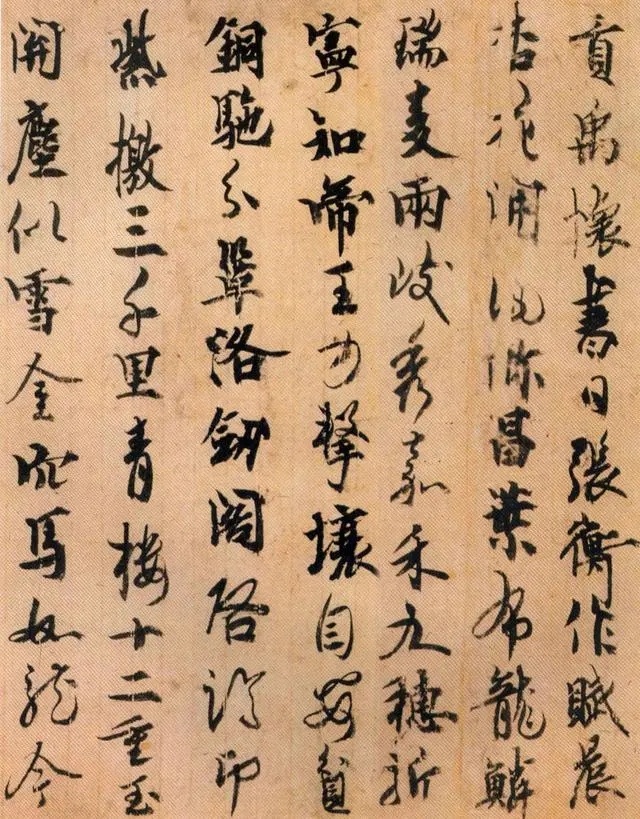 貢禹懷書日張衡作賦晨
杏花開昌葉布龍鱗
瑞麦兩岐秀嘉禾九穗新
寧知帝王力擊壤自安貧
銅駞分鞏洛劒閣啓臨卭
紫檄三千里青樓十二重玉
關塵似雪金穴馬如龍今